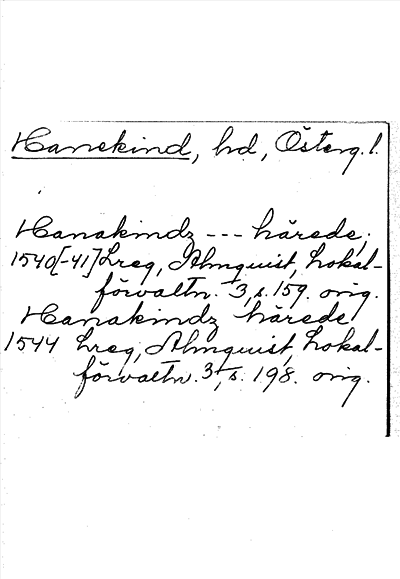 Hanekind, hd, Österg. l.
Hanakindz --- härede,
1540[-41] Lreg, Almquist, Lokal-
förvaltn. 3, s. 159. orig.
Hanakindz härede
1544 Lreg, Almquist, Lokal-
förvaltn. 3, s. 198. orig.